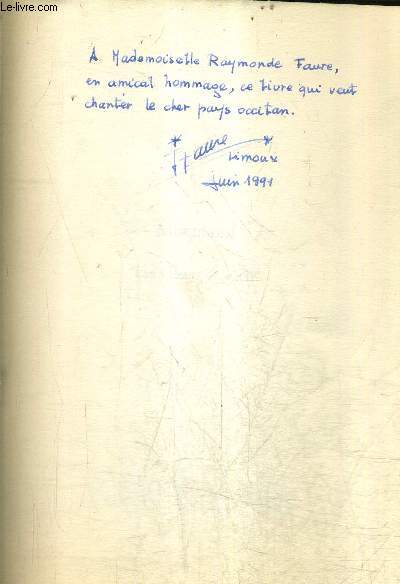 Le-livre.com
À Mademoiselle Raymonde Faure,
en amical hommage, ce livre qui veut
chanter le cher pays occitan.
Faure
Limoux
Juin 1991